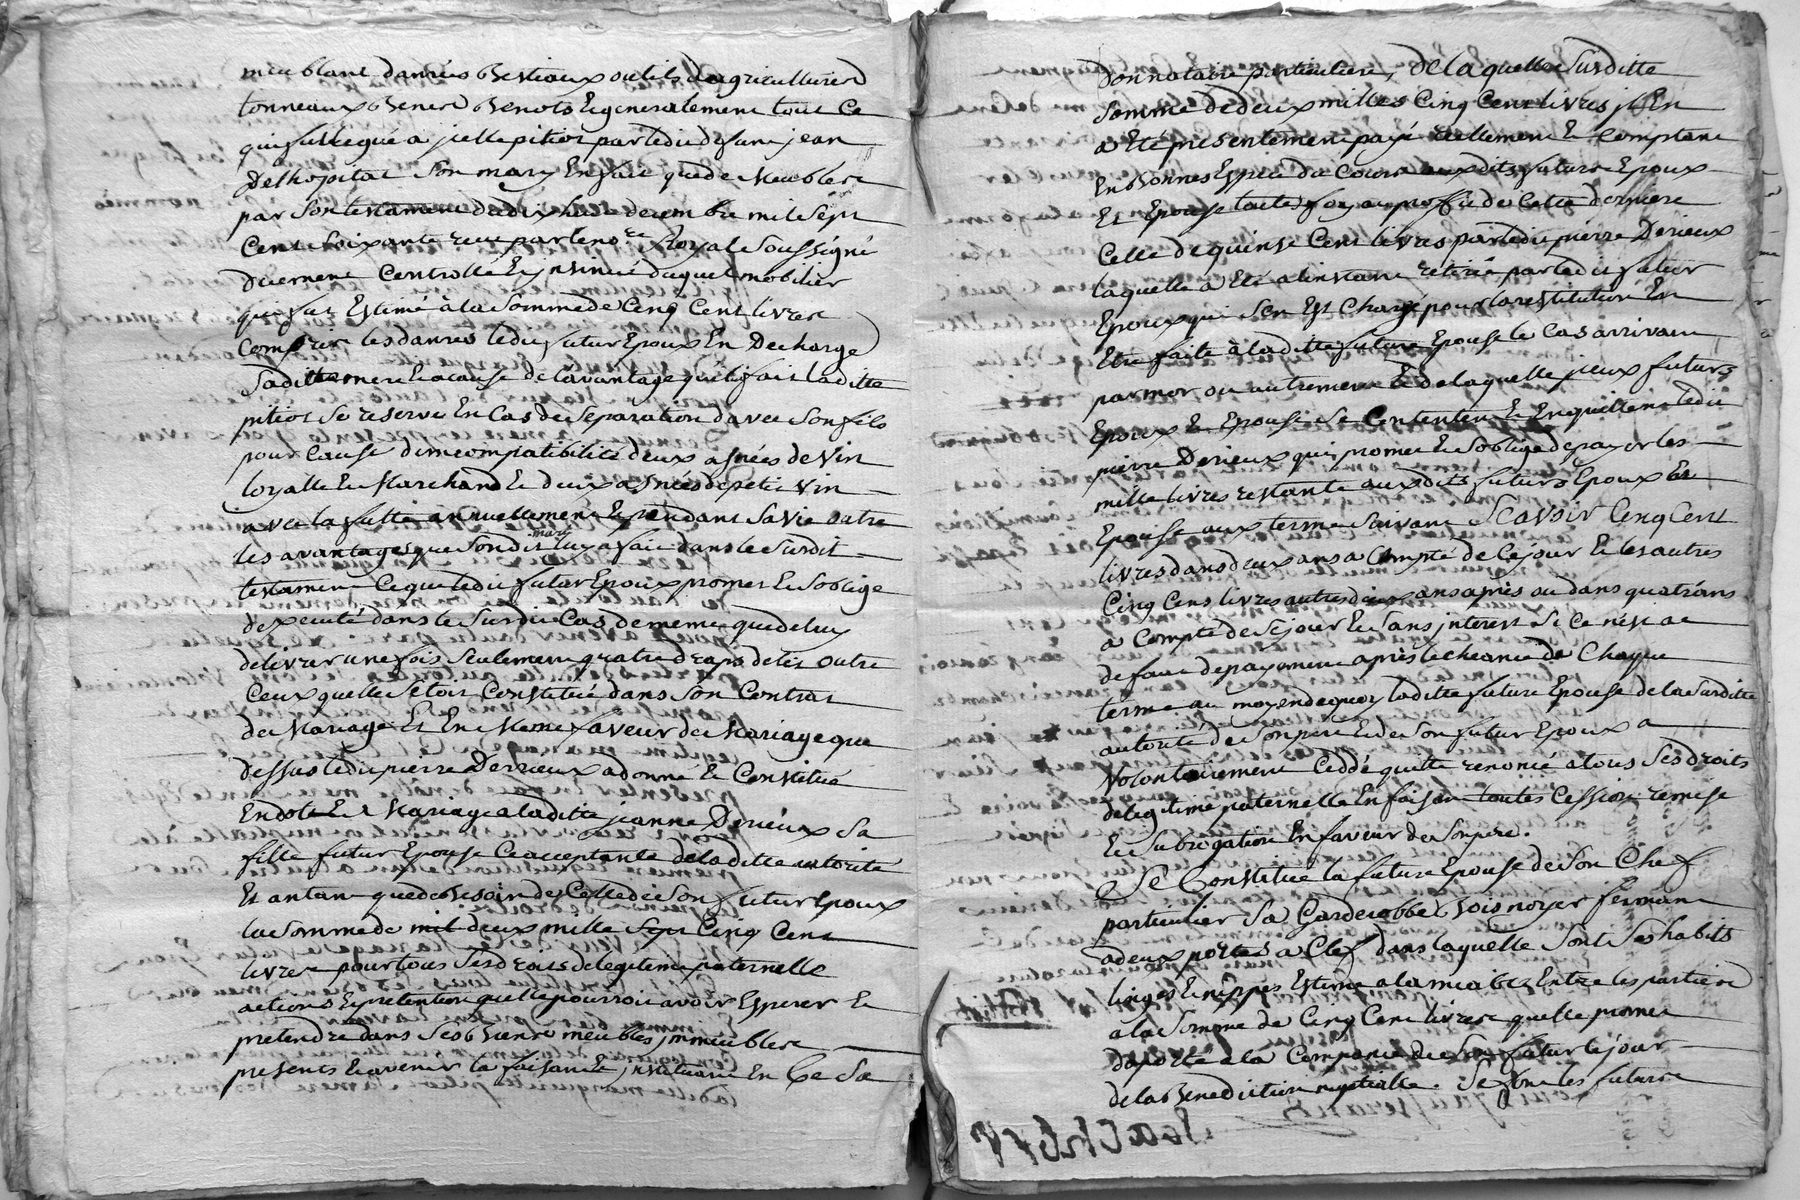 meublant danrées Bestiaux outils dagriculture
tonneaux Benes Benots Et generalement tout Ce
qui fut legué a jcelle pitiot par ledit defunt jean
Delhopital Son mary En fait que de Meubles
par Son testament du dix huit decembre mil Sept
Cent Soixante reçu par le no.re Royal Soussigné
Duement Controllé Et jnsinué duquel mobilier
qui fut Estimé à la Somme de Cinq Cent livres
Compris les danres ledit futur Epoux En Decharge
Saditte mere Et acause de lavantage quil fait laditte
pitiot Se reserve En Cas de Separation davec Son fils
pour Cause dimcompatibilité deux asnées de Vin
loyalle Et Marchand Et deux asnées de petit Vin
avec la futte annuellement Et pendant Sa Vie outre
les avantages que Sondit mary luy a fait dans le Susdit
testament Ce que ledit futur Epoux promet Et Soblige
dexecuté dans le Susdit Cas de meme que de luy
delivrer une fois Seulement quatre draps de lit outre
Ceux quelle Setoit Constitué dans Son Contrat
de Mariage Et En Meme faveur de Mariage que
dessus ledit pierre Derrieux a donné Et Constitué
En dot Et Mariage a laditte jeanne Derieux Sa
fille futur Epouse Ce acceptante de laditte autorité
Et antant que de Besoin de Celle de Son futur Epoux
la Somme de mil deux mille Sept Cinq Cent
livres pour tous Ses droits de legitime paternelle
actions Et pretention quelle pourroit avoir Esperer Et
pretendre dans Ses Biens meubles jmmeubles
presents Et avenir la faisant jnstituant En Ce Sa
Donnataire particuliere, De laquelle Susditte
Somme de deux milles Cinq Cent livres jl En
a Eté presentement payé reellement Et Comptant
En Bonnes Espece de Cours auxdits futurs Epoux
Et Epouse
Celle de quinse Cent livres par ledit pierre Derieux
laquelle a Eté a linstant retirée par ledit futur
Epoux qui Sen Est Chargé pour la restitution En
Etre faite à laditte future Epouse le Cas arrivant
par mort ou autrement Et de laquelle jceux futurs
Epoux Et Epouse Se Contentent Et En quittent ledit
pierre Derieux qui promet Et Soblige de payer les
mille livres restante auxdits futurs Epoux Et
Epouse aux terme Suivant SCavoir Cinq Cent
livres dans deux ans a Compté de Ce jour Et les autres
Cinq Cent livres autres deux ans après ou dans quatre ans
a Compté de Ce jour Et Sans jnterest Si Ce nest au
defaut de payement après lecheance de Chaque
terme au moyen de quoy laditte future Epouse de la Susditte
autorité de Son pere Et de Son futur Epoux a
Volontairement Ceddé quitté renoncé a tous Ses droits
de legitime paternelle En faisant toutes Cession remise
Et Subrogation En faveur de Son pere.
Se Constitue la future Epouse de Son Chef
particulier Sa Garderobbe Bois noyer fermant
a deux portes a Clef dans laquelle Sont Ses habits
linges Et nippes Estimé a lamiable Entre les parties
a la Somme de Cinq Cent livres quelle promet
daporté a la Compagnie de Son futur le jour
de la Benediction nuptialle. Se font les futurs